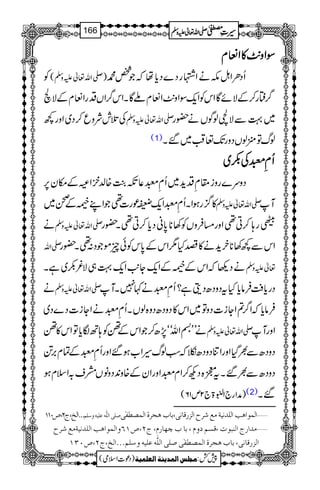 سیرتِ مصطفیٰ صلی اللہ تعالیٰ علیہ وسلم 166
سو اونٹ کا انعام
اُدھر اہل مکہ نے اشتہار دے دیا تھا کہ جو شخص محمد (صلی اللہ تعالیٰ علیہ وسلم) کو
گرفتار کر کے لائے گا اس کو ایک سو اونٹ انعام ملے گا۔ اس گراں قدر انعام کے لالچ
میں بہت سے لالچی لوگوں نے حضور صلی اللہ تعالیٰ علیہ وسلم کی تلاش شروع کر دی اور کچھ
لوگ تو منزلوں دور تک تعاقب میں گئے۔ (1)
اُمِ معبد کی بکری
دوسرے روز مقام قدید میں اُمِ معبد عاتکہ بنت خالد خزاعیہ کے مکان پر
آپ صلی اللہ تعالیٰ علیہ وسلم کا گزر ہوا۔ اُمِ معبد ایک ضعیفہ عورت تھی جو اپنے خیمہ کے صحن میں
بیٹھی رہا کرتی تھی اور مسافروں کو کھانا پانی دیا کرتی تھی۔ حضور صلی اللہ تعالیٰ علیہ وسلم نے
اس سے کچھ کھانا خریدنے کا قصد کیا مگر اس کے پاس کوئی چیز موجود نہیں تھی۔ حضور صلی اللہ
تعالیٰ علیہ وسلم نے دیکھا کہ اس کے خیمہ کے ایک جانب ایک بہت ہی لاغر بکری ہے۔
دریافت فرمایا کیا یہ دودھ دیتی ہے؟ اُمِ معبد نے کہا نہیں۔ آپ صلی اللہ تعالیٰ علیہ وسلم نے
فرمایا کہ اگر تم اجازت دو تو میں اس کا دودھ دوہ لوں۔ اُمِ معبد نے اجازت دے دی
اور آپ صلی اللہ تعالیٰ علیہ وسلم نے ”بسم اللہ“ پڑھ کر جو اس کے تھن کو ہاتھ لگایا تو اس کا تھن
دودھ سے بھر گیا اور اتنا دودھ نکلا کہ سب لوگ سیراب ہو گئے اور اُمِ معبد کے تمام برتن
دودھ سے بھر گئے۔ یہ معجزہ دیکھ کر اُمِ معبد اور ان کے خاوند دونوں مشرف بہ اسلام ہو
گئے۔ (2) (مدارج النبوۃ ج۲ ص۶۱)
المواهب اللدنیة مع شرح الزرقانی، باب هجرة المصطفی صلی اللہ علیه وسلم...الخ، ج۲، ص۱۱۰
مدارج النبوت، قسم دوم، باب چهارم، ج۲، ص۶۱ والمواهب اللدنیة مع شرح
الزرقانی، باب هجرة المصطفی صلی اللہ علیه وسلم...الخ، ج۲، ص۱۳۰
پیش کش: مجلس المدینة العلمیة (دعوتِ اسلامی)